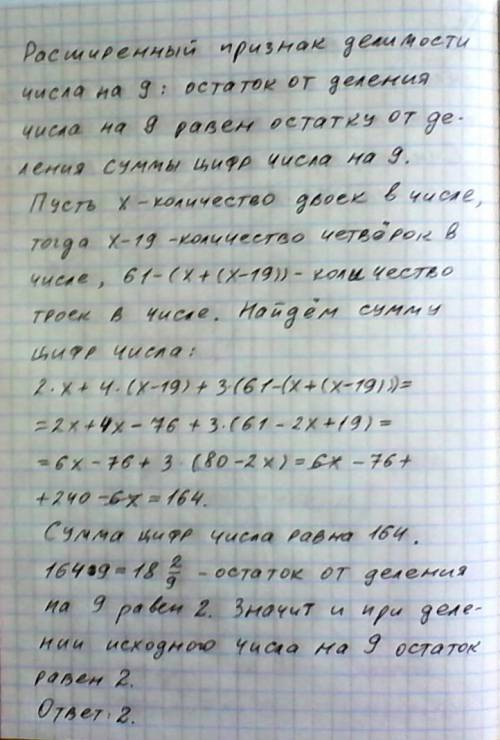 Расширенный признак делимости
числа на 9: остаток от деления
числа на 9 равен остатку от де-
ления суммы цифр числа на 9.
Пусть x - количество двоек в числе,
тогда x-19 - количество четвёрок в
числе, 61-(x+(x-19)) - количество
троек в числе. Найдём сумму
цифр числа:
2·x+4·(x-19)+3·(61-(x+(x-19))=
=2x+4x-76+3·(61-2x+19)=
=6x-76+3·(80-2x)=6x-76+
+240-6x=164.
Сумма цифр числа равна 164.
164:9=18 2/9 - остаток от деления
на 9 равен 2. Значит и при деле-
нии исходного числа на 9 остаток
равен 2.
Ответ: 2.